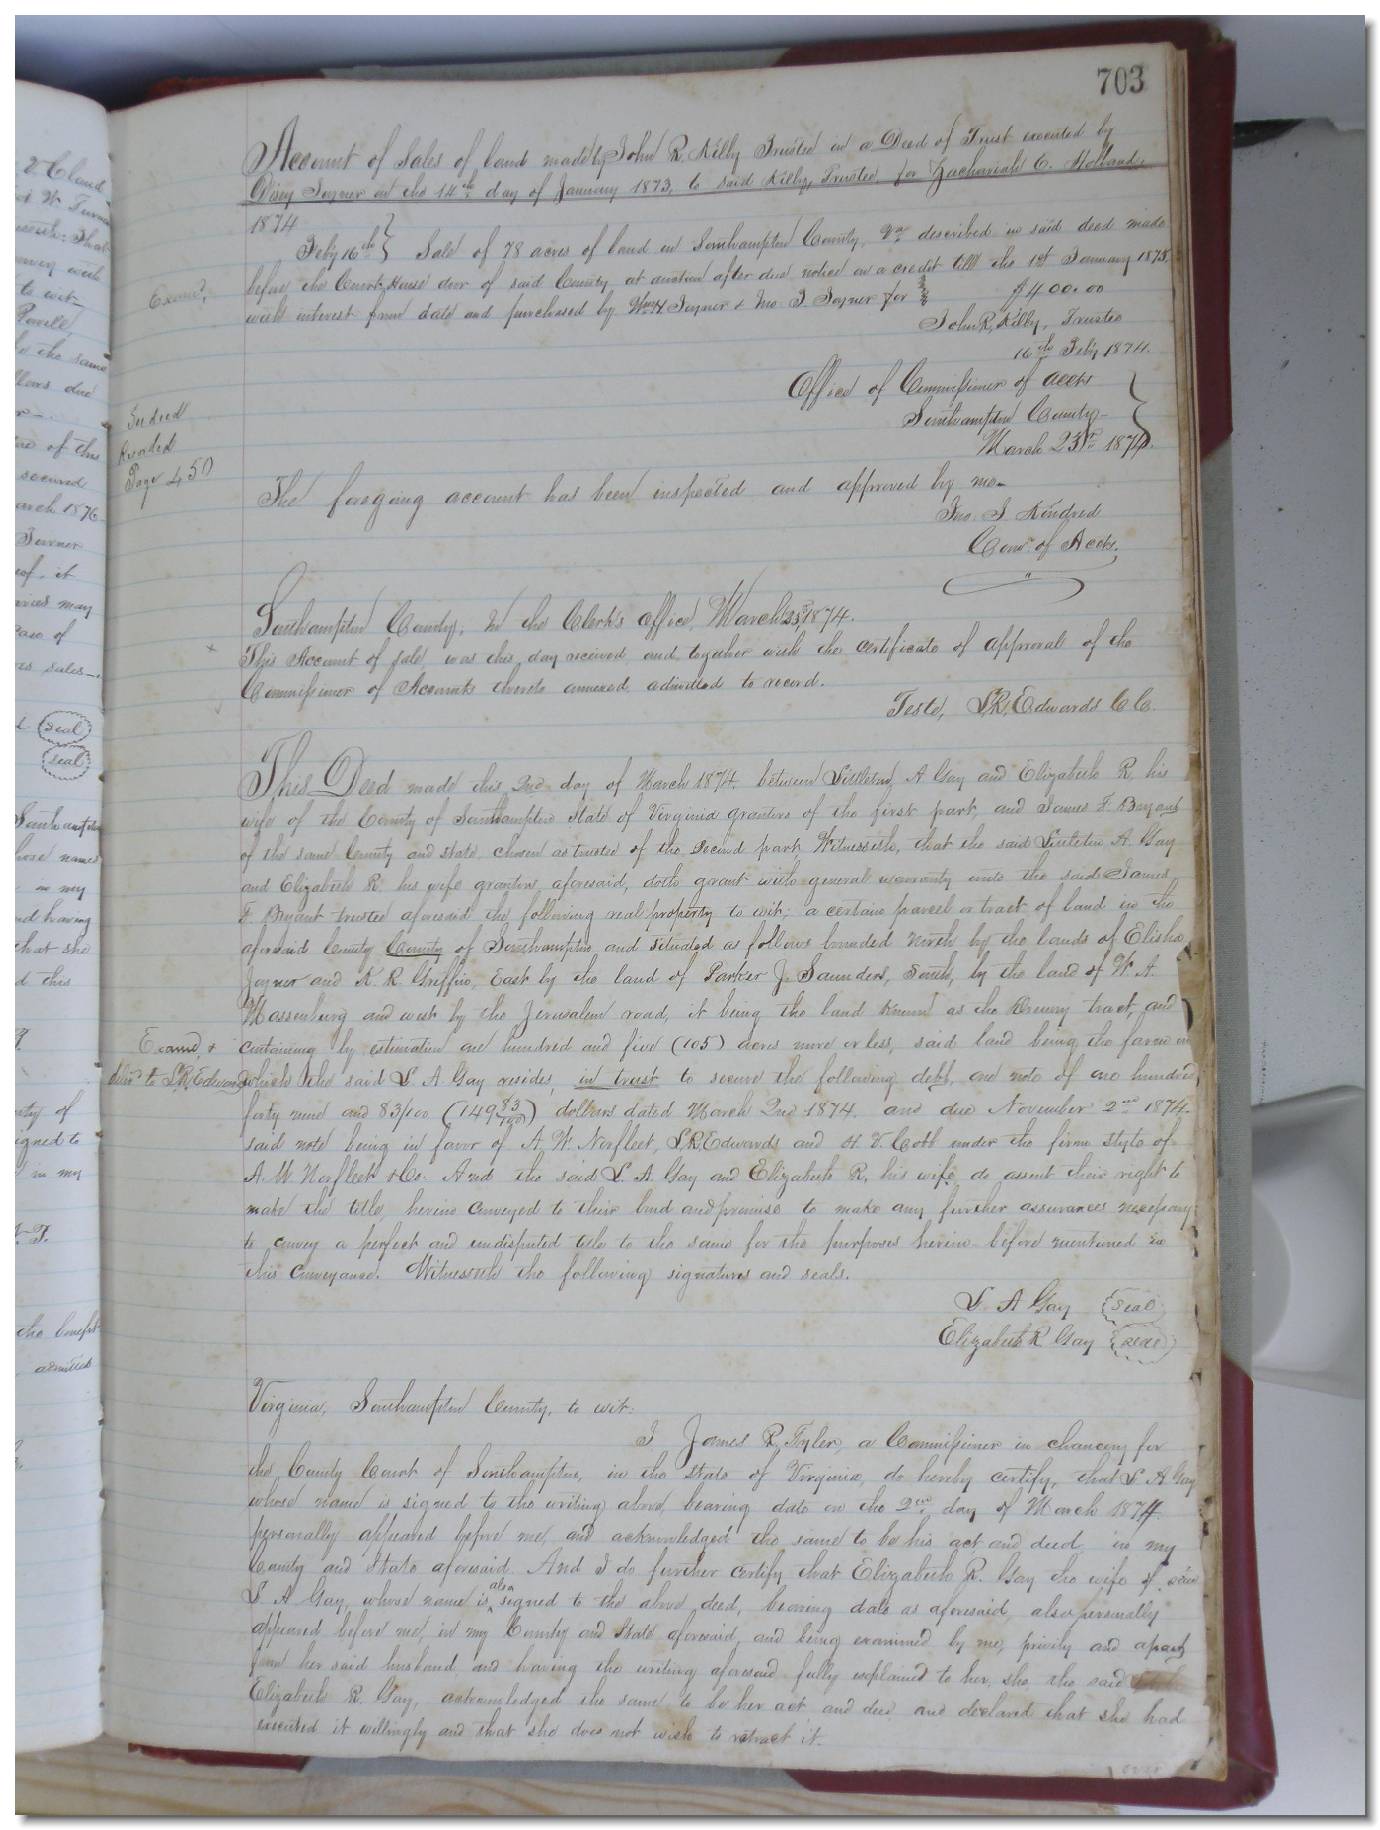 703
Account of Sales of land made by John R. Kilby Trustee in a Deed of Trust executed by
Joyner on the 14th day of January 1873, to said Kilby, Trustee, for Zachariah E. Holland.
1874
Feby 16th } Sale of 78 acres of land in Southampton County, &c described in said deed made
before the Court House door of said County at auction after due notice on a credit till the 1st January 1875.
with interest from date and purchased by Wm H Joyner & Jno. T. Joyner for $400.00
Exam'd,
John R. Kilby, Trustee
16th Feby 1874.
Office of Commissioner of accts
Southampton County
March 23rd 1874.
Indexed
Recorded
Page 450
The forgoing account has been inspected and approved by me
Jno. S. Kindred
Comr of Accts.
Southampton County; In the Clerk's office, March 23rd, 1874.
This Account of sale was this day received, and, together with the certificate of approval of the
Commissioner of Accounts thereto annexed, admitted to record.
Teste, L.R. Edwards C C.
This Deed made this 2nd day of March 1874, between Littleton A Gay and Elizabeth R, his
wife of the County of Southampton State of Virginia grantors of the first part, and James F. Bryant
of the same County and state, chosen as trustee of the second part, Witnesseth, that the said Littleton A. Gay
and Elizabeth R. his wife grantors, aforesaid, doth grant with general warranty unto the said James
F. Bryant trustee aforesaid the following real property to wit; a certain parcel or tract of land in the
aforesaid County County of Southampton and situated as follows bounded North by the lands of Elisha
Joyner and K. R. Griffin, East by the land of Parker J. Saunders, South, by the land of W. A.
Massenburg and west by the Jerusalem road, it being the land known as the tract, and
containing by estimation one hundred and five (105) acres more or less, said land being the farm on
Examd, &
deliv'd to L.R. Edwards
which the said L A Gay resides, in trust to secure the following debt, one note of one hundred
forty nine and 83/100 (149 83/100) dollars dated March 2nd 1874. and due November 2nd 1874.
said note being in favor of A. W. Norfleet, L.R. Edwards and H. V. Cobb under the firm style of
A. W. Norfleet & Co. And the said L. A. Gay and Elizabeth R, his wife do assert their right to
make the title, herein conveyed to their land and promise to make any further assurances necessary
to convey a perfect and undisputed title to the same for the purposes herein before mentioned in
this conveyance. Witnesseth the following signatures and seals.
L. A Gay (seal)
Elizabeth R. Gay (seal)
Virginia, Southampton County, to wit:
I James R. Tyler, a Commissioner in chancery for
the County Court of Southampton, in the State of Virginia, do hereby certify, that L A Gay
whose name is signed to the writing above, bearing date on the 2nd day of March 1874.
personally appeared before me, and acknowledged the same to be his act and deed, in my
County and State aforesaid. And I do further certify that Elizabeth R. Gay the wife of said
L A Gay, whose name is also signed to the above deed, bearing date as aforesaid, also personally
appeared before me, in my County and State aforesaid, and being examined by me, privily and apart
from her said husband, and having the writing aforesaid fully explained to her, she, the said
Elizabeth R. Gay, acknowledged the same to be her act and deed and declared that she had
executed it willingly and that she does not wish to retract it.